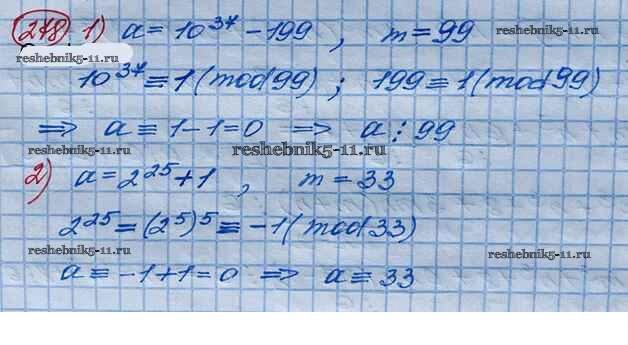 278 1) a = 10^37 - 199 , m = 99
reshebnik5-11.ru reshebnik5-11.ru
10^37 ≡ 1 (mod 99) ; 199 ≡ 1 (mod 99)
reshebnik5-11.ru reshebnik5-11.ru
⇒ a ≡ 1 - 1 = 0 ⇒ a ⋮ 99
reshebnik5-11.ru reshebnik5-11.ru
2) a = 2^25 + 1 , m = 33
2^25 = (2^5)^5 ≡ -1 (mod 33)
reshebnik5-11.ru reshebnik5-11.ru
a ≡ -1 + 1 = 0 ⇒ a ≡ 33
reshebnik5-11.ru reshebnik5-11.ru